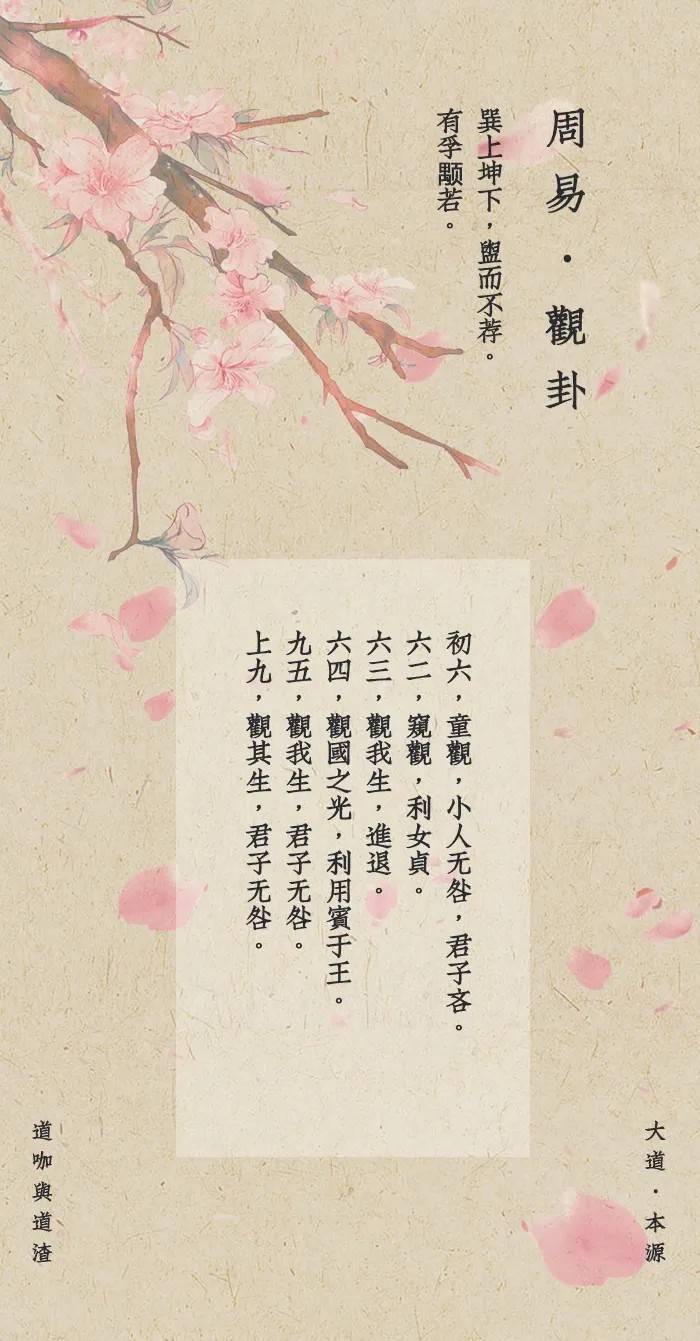 周易·觀卦
巽上坤下，盥而不荐。
有孚顒若。
初六，童觀，小人无咎，君子吝。
六二，窺觀，利女貞。
六三，觀我生，進退。
六四，觀國之光，利用賓于王。
九五，觀我生，君子无咎。
上九，觀其生，君子无咎。
大道·本源
道咖與道渣